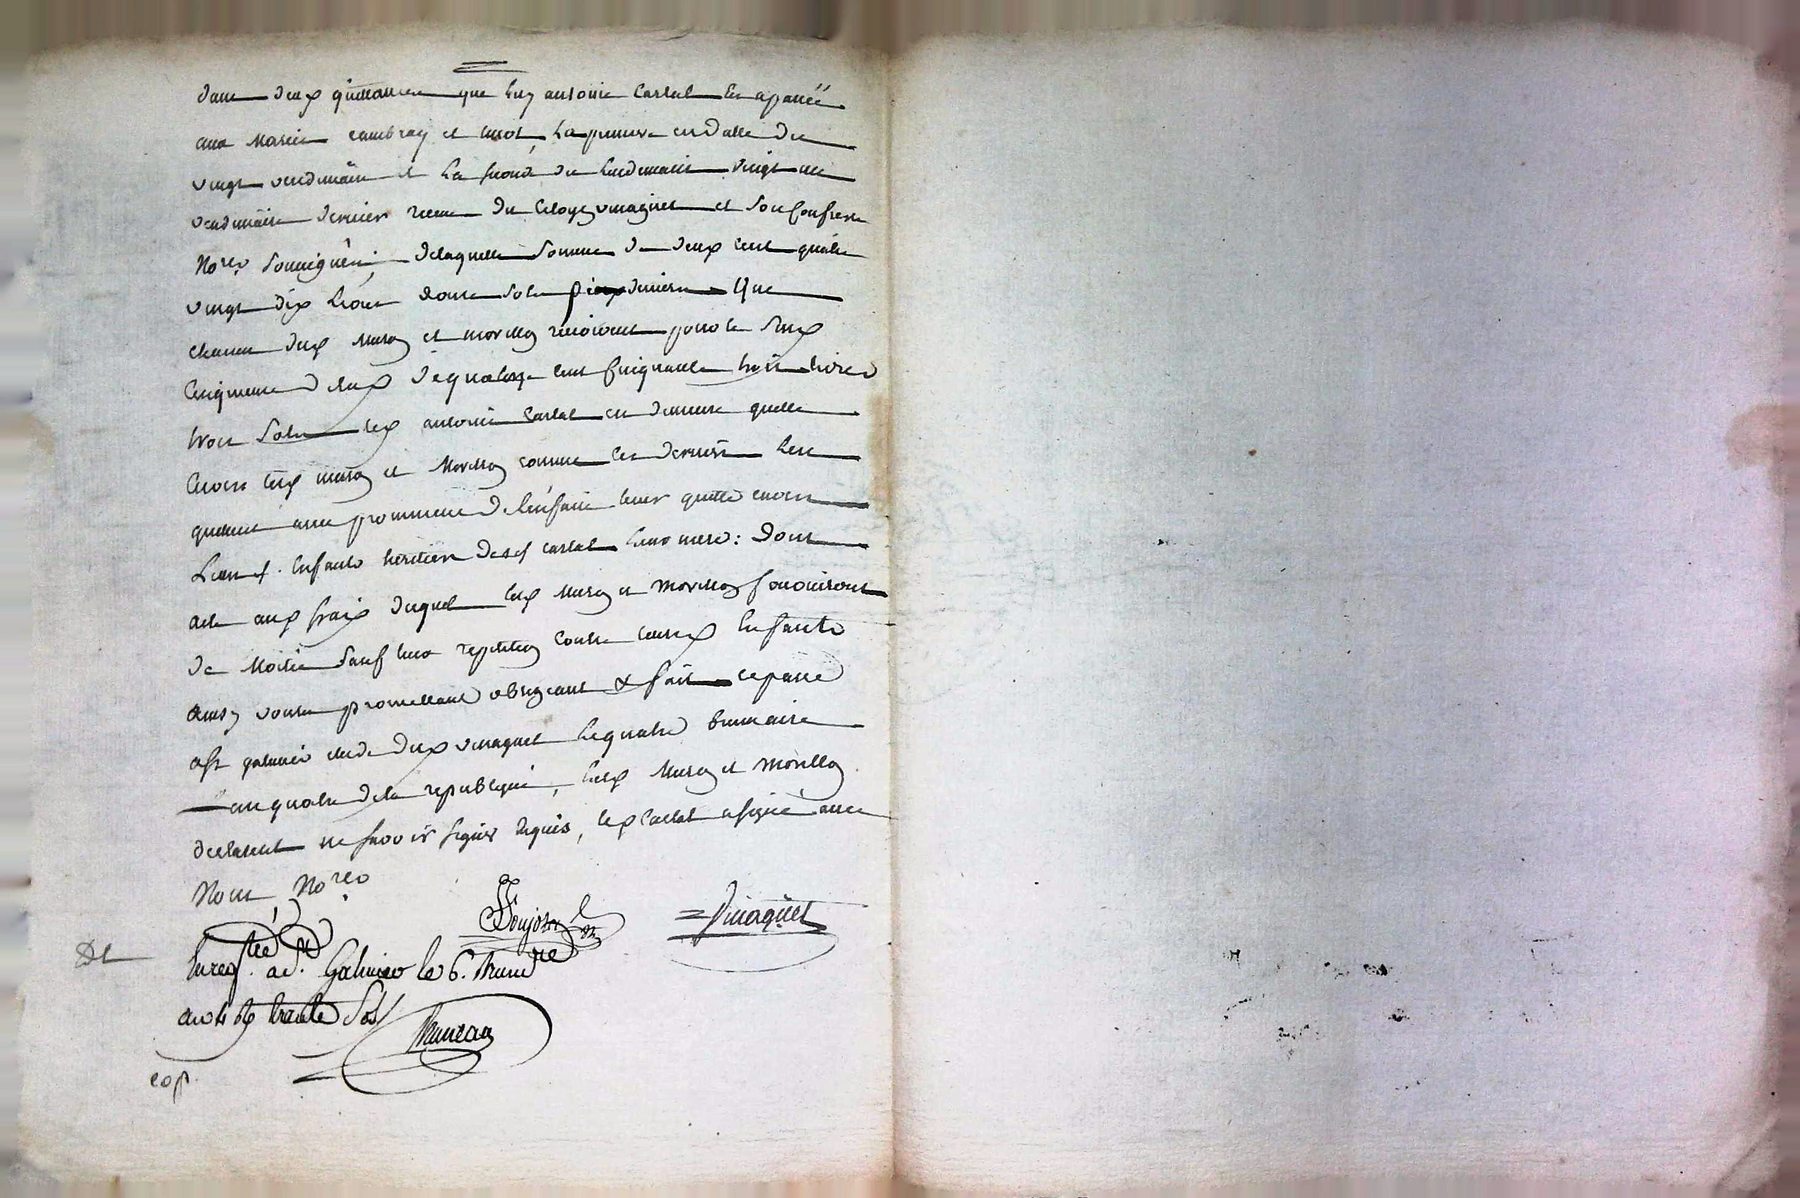 dans deux quittances que luy antoine Carlat en a passée
aux Marier cambray et la premiere en datte du
vingt vendimaire et la seconde du lendemain vingt un
vendimaire dernier receue du Citoyen vinaguet et son Confrere
No.res delaquelle somme de deux cent quatre
vingt dix livres douze sols deniers que
chacun deux Muray et morillon recoivent pour le
cent cinquante trois livres
trois sols led antoine Carlat en demeure quitte
envers lesd muray et Morillon comme ces derniers len
quittent avec promesse de len faire tenir quitte envers
Leurs d. Enfants heritiers de lad carlat leur mere: Dont
acte aux frais duquel lesd Muray et Morillon fourniront
de Moitié sauf leur repetition contre leursd Enfants
ainsy voulu promettant obligeant & fait et passé
a St galmier etude dud vinaguet le quatre brumaire
an quatre de la republique, lesd Muray et Morillon
declarent ne savoir signer requis, led Carlat a signé avec
Nous No.res
Vinaguet
Enreg.tré a S.t Galmier le 6. Brum.re
an 4 trente Sols